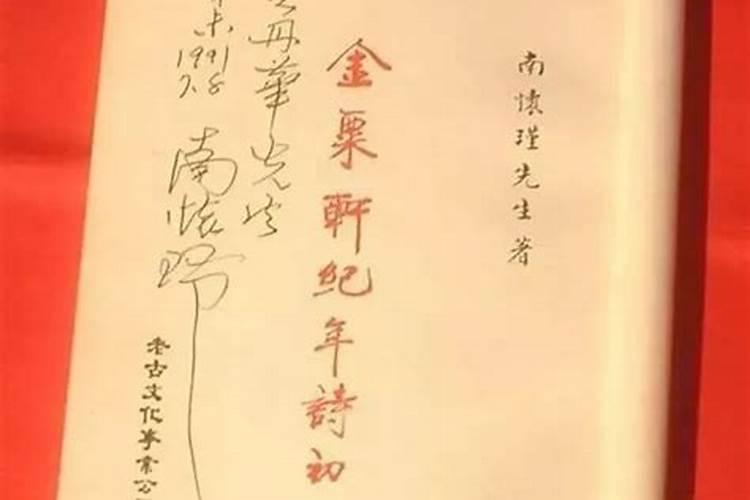 南懷瑾先生著
金粟軒紀年詩初
丹華先生
未
1991
7.8
南懷瑾
老古文化事業公